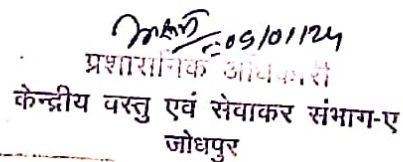 05/01/24
प्रशासनिक अधिकारी
केन्द्रीय वस्तु एवं सेवाकर संभाग-ए
जोधपुर